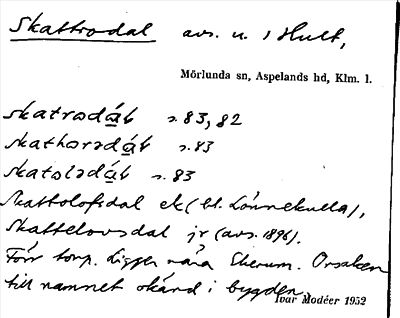 Skattrodal avs. u. 1 Hult,
Mörlunda sn, Aspelands hd, Klm. l.
skatrədáɫ s. 83, 82
skathorədáɫ s. 83
skatslədáɫ s. 83
Skattolofsdal ek (bl. Lönnekulla),
Skattelovsdal jr (avs. 1896).
Förr torp. Ligger nära Ekerum. Orsaken
till namnet okänd i bygden.
Ivar Modéer 1952